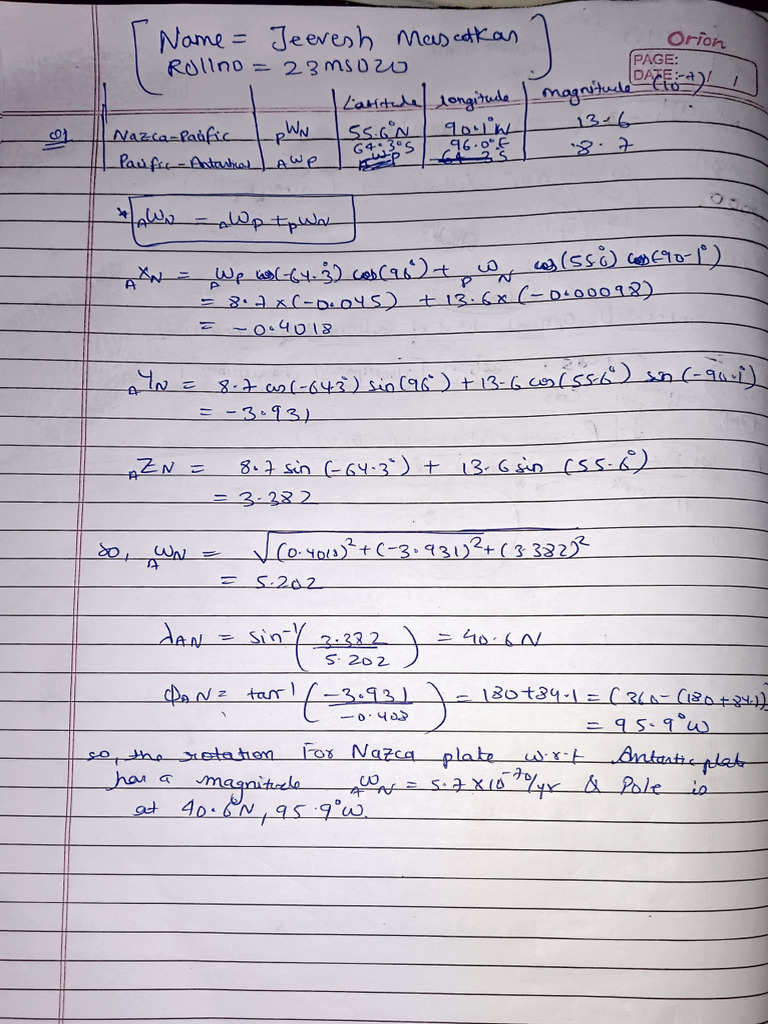 Name = Jeevesh Mascatkar
Rollno = 23MS020
Orion
PAGE:
DATE: / / 1
Latitude longitude magnitude (10⁻⁷)
Q1 Nazca-Pacific PWN 55.6°N 90.1°W 13.6
Pacific-Antarctica AWP 64.3°S 96.0°E 8.7
* AWN = AWP + PWN
AXN = AWP cos(-64.3°) cos(96°) + PWN cos(55.6°) cos(-90.1°)
= 8.7 x (-0.045) + 13.6 x (-0.00098)
= -0.4018
AYN = 8.7 cos(-64.3°) sin(96°) + 13.6 cos(55.6°) sin(-90.1°)
= -3.931
AZN = 8.7 sin (-64.3°) + 13.6 sin (55.6°)
= 3.382
so, AWN = √(0.4018)²+(-3.931)²+(3.382)²
= 5.202
λAN = sin⁻¹(3.382/5.202) = 40.6 N
ΦAN = tan⁻¹(-3.931/-0.403) = 180+84.1 = (360-(180+84.1))
= 95.9°W
so, the rotation For Nazca plate w.r.t Antarctic plate
has a magnitude AWN = 5.7 x 10⁻⁷°/yr & Pole is
at 40.6°N, 95.9°W.